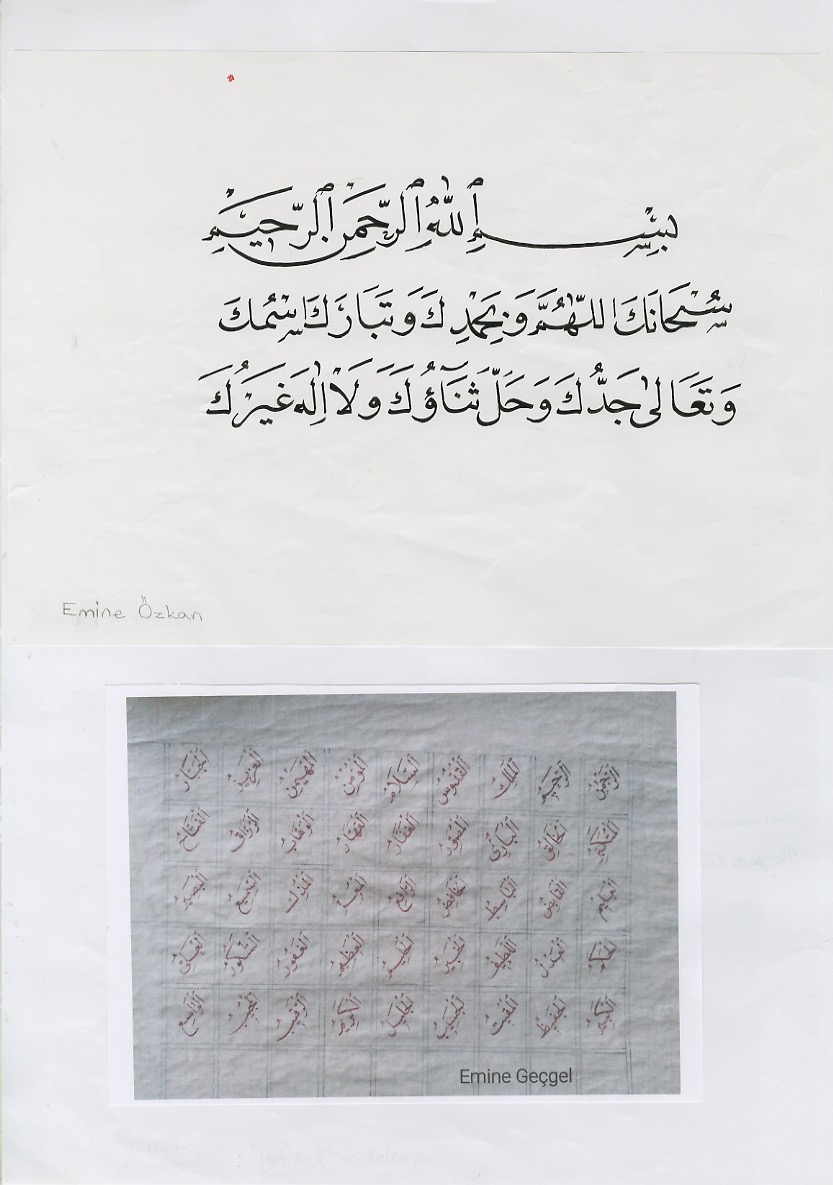 بِسْمِ اللّٰهِ الرَّحْمٰنِ الرَّحِيمِ
سُبْحَانَكَ اللّٰهُمَّ وَبِحَمْدِكَ وَتَبَارَكَ اسْمُكَ
وَتَعَالٰى جَدُّكَ وَحَلَّ ثَنَاؤُكَ وَلَا اِلٰهَ غَيْرُكَ
Emine Özkan
الرحمن الرحيم الملك القدوس السلام المؤمن المهيمن العزيز الجبار
المتكبر الخالق البارئ المصور الغفار القهار الوهاب الرزاق الفتاح
العليم القابض الباسط الخافض الرافع المعز المذل السميع البصير
الحكم العدل اللطيف الخبير الحليم العظيم الغفور الشكور العلي
الكبير الحفيظ المقيت الحسيب الجليل الكريم الرقيب المجيب الواسع
Emine Geçgel